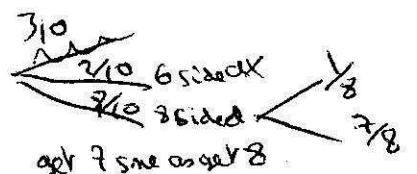 3/10
2/10 6 sided X
8/10 8 sided 1/8
7/8
get 7 sme as get 8